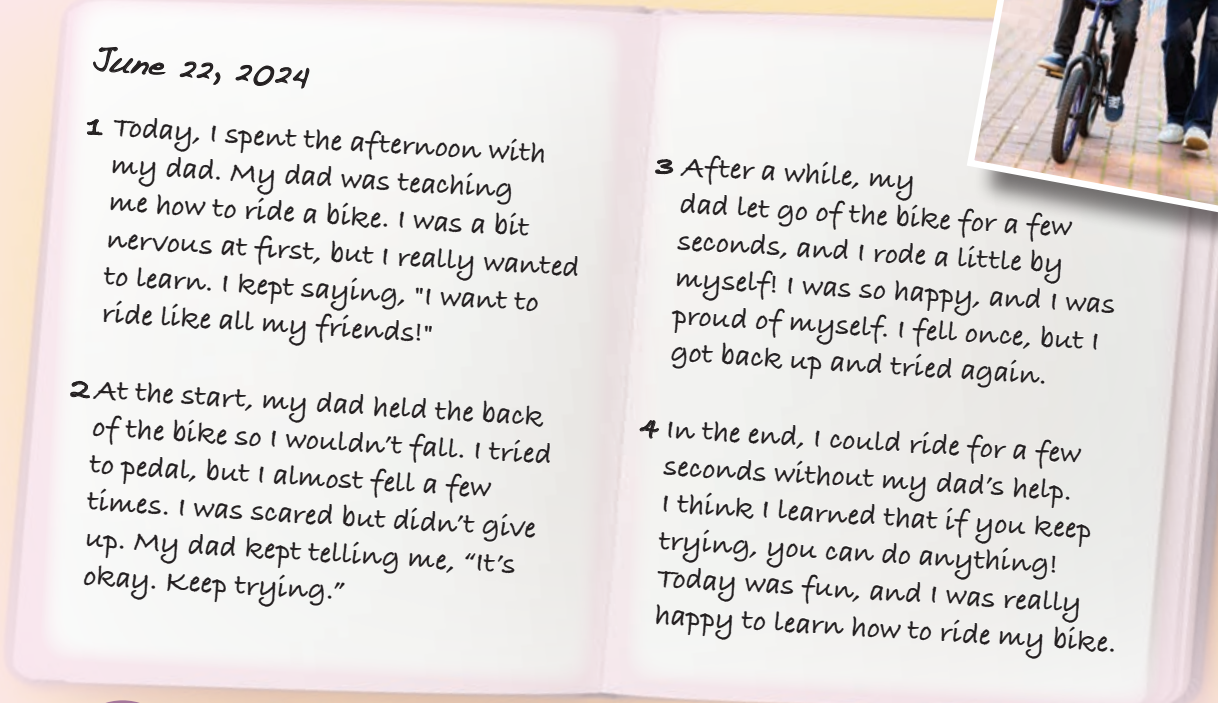 June 22, 2024
1 Today, I spent the afternoon with
my dad. My dad was teaching
me how to ride a bike. I was a bit
nervous at first, but I really wanted
to learn. I kept saying, "I want to
ride like all my friends!"
2 At the start, my dad held the back
of the bike so I wouldn't fall. I tried
to pedal, but I almost fell a few
times. I was scared but didn't give
up. My dad kept telling me, “It's
okay. Keep trying.”
3 After a while, my
dad let go of the bike for a few
seconds, and I rode a little by
myself! I was so happy, and I was
proud of myself. I fell once, but I
got back up and tried again.
4 In the end, I could ride for a few
seconds without my dad's help.
I think I learned that if you keep
trying, you can do anything!
Today was fun, and I was really
happy to learn how to ride my bike.